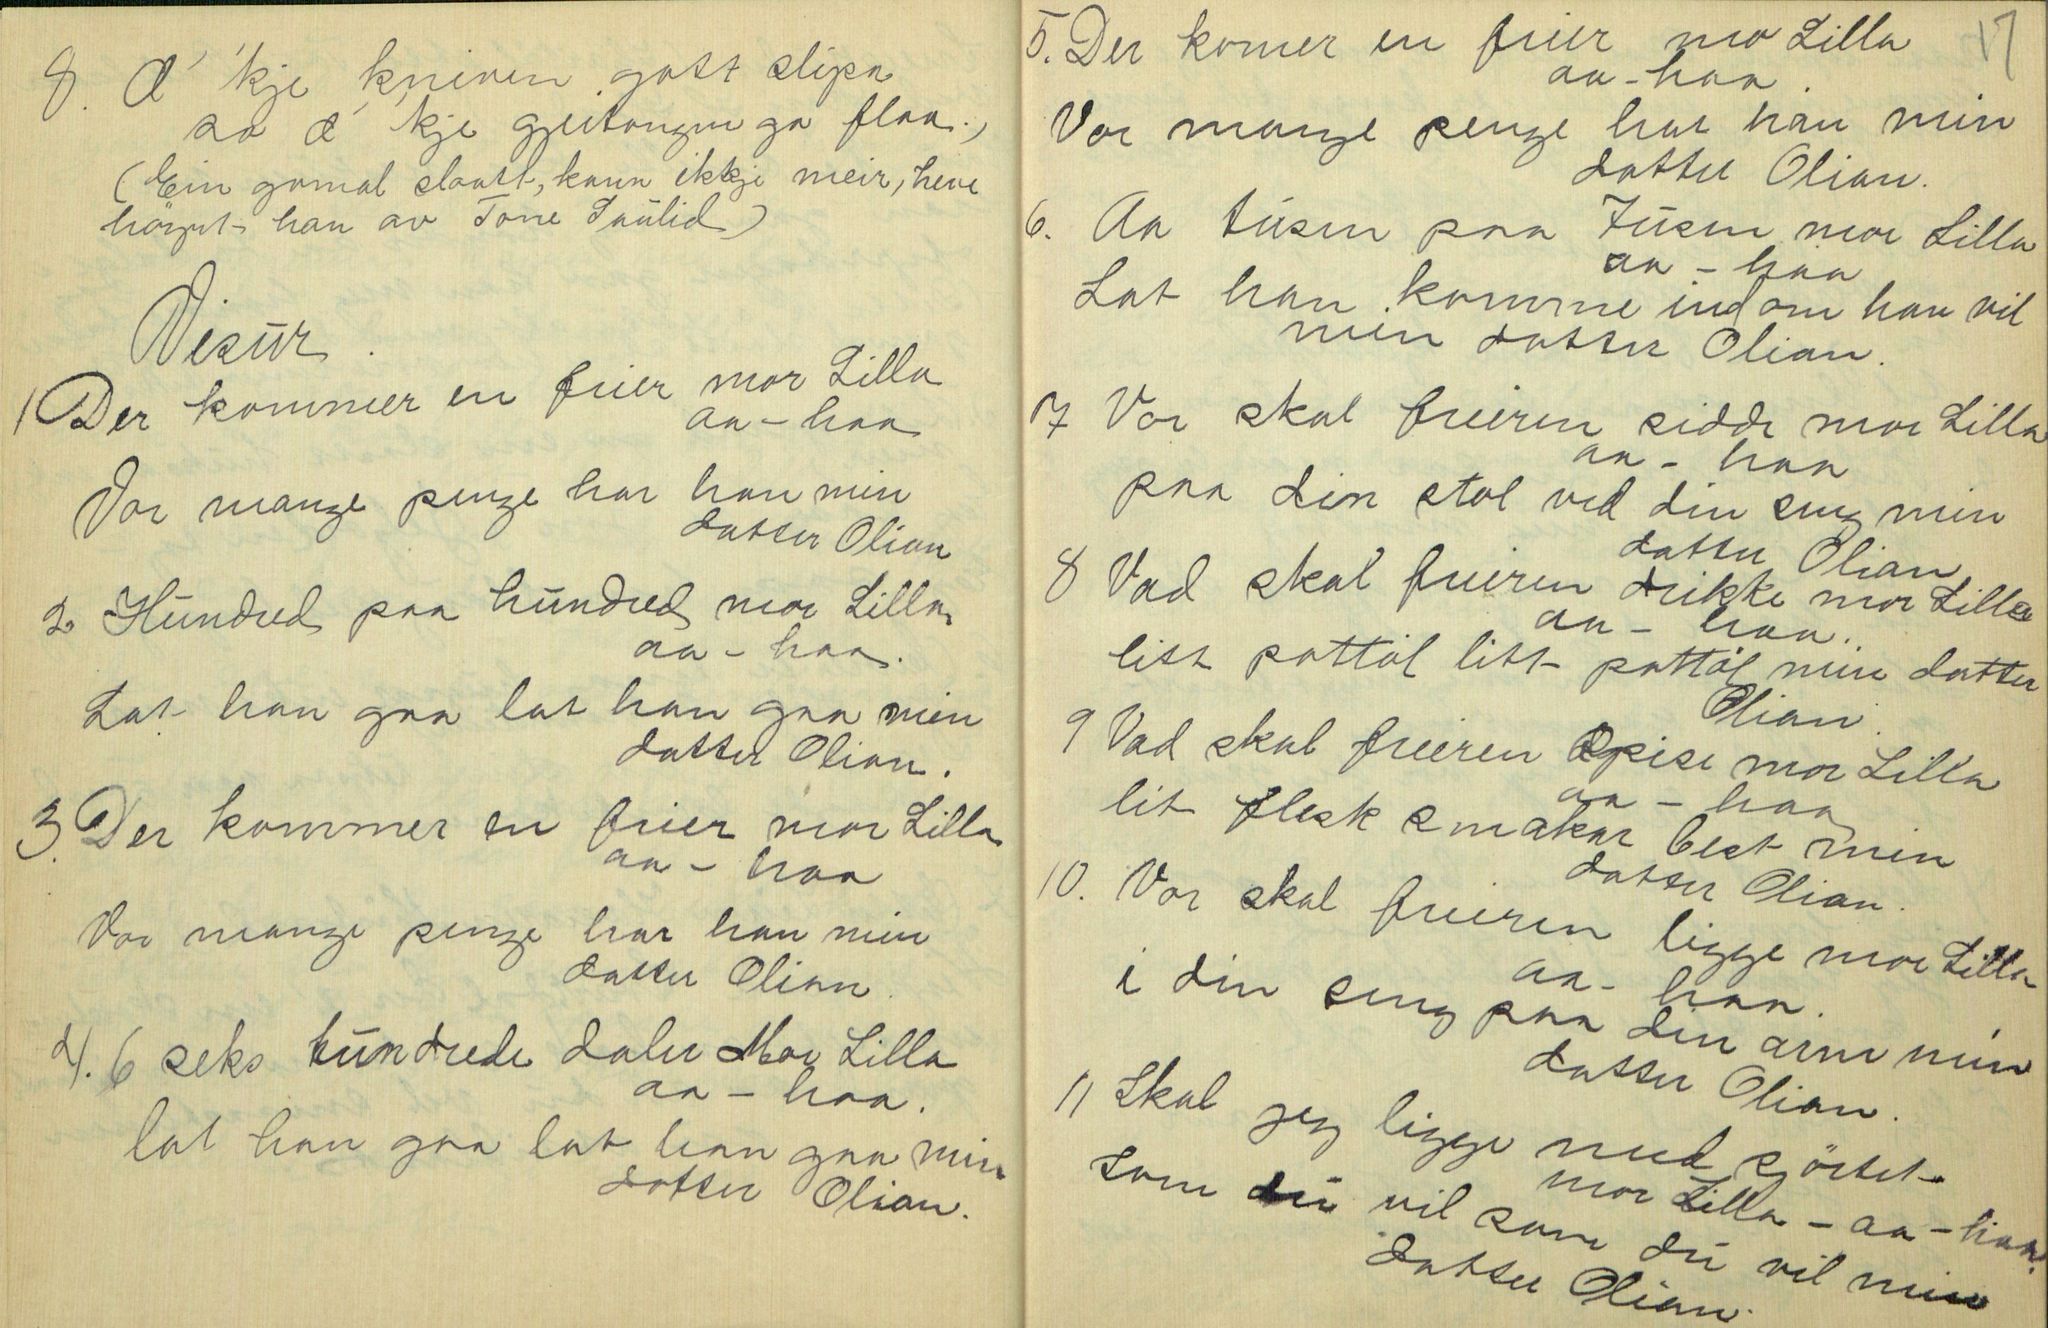 8. Æ 'kje kniven gott slipa
so æ 'kje gjeitongen go flaa.
(Ein gomal slaatt, kann ikkje meir, heve
høyrt han av Tone Saulid)
Visur.
1 Der kommer en frier mor Lilla
aa-haa
Vor mange penge har han min
datter Olian
2 Hundred paa hundred mor Lilla
aa-haa.
Lat han gaa lat han gaa min
datter Olian.
3. Der kommer en frier mor Lilla
aa-haa
Vor mange penge har han min
datter Olian.
4. 6 seks hundrede daler Mor Lilla
aa-haa.
lat han gaa lat han gaa min
datter Olian.
17
5. Der komer en frier mor Lilla
aa-haa.
Vor mange penge har han min
datter Olian.
6. Aa tusen paa Tusen mor Lilla
aa-haa
Lat han komme ind om han vil
min datter Olian.
7 Vor skal frieren sidde mor Lilla
aa-haa
paa din stol ved din seng min
datter Olian
8 Vad skal frieren drikke mor Lilla
aa-haa.
litt pottøl litt pottøl min datter
Olian.
9 Vad skal frieren spise mor Lilla
aa-haa
lit flesk smakar best min
datter Olian.
10. Vor skal frieren ligge mor Lilla
aa-haa.
i din seng paa din arm min
datter Olian.
11 Skal jeg ligge med sjørtet
mor Lilla-aa-haa.
som du vil som du vil min
datter Olian.